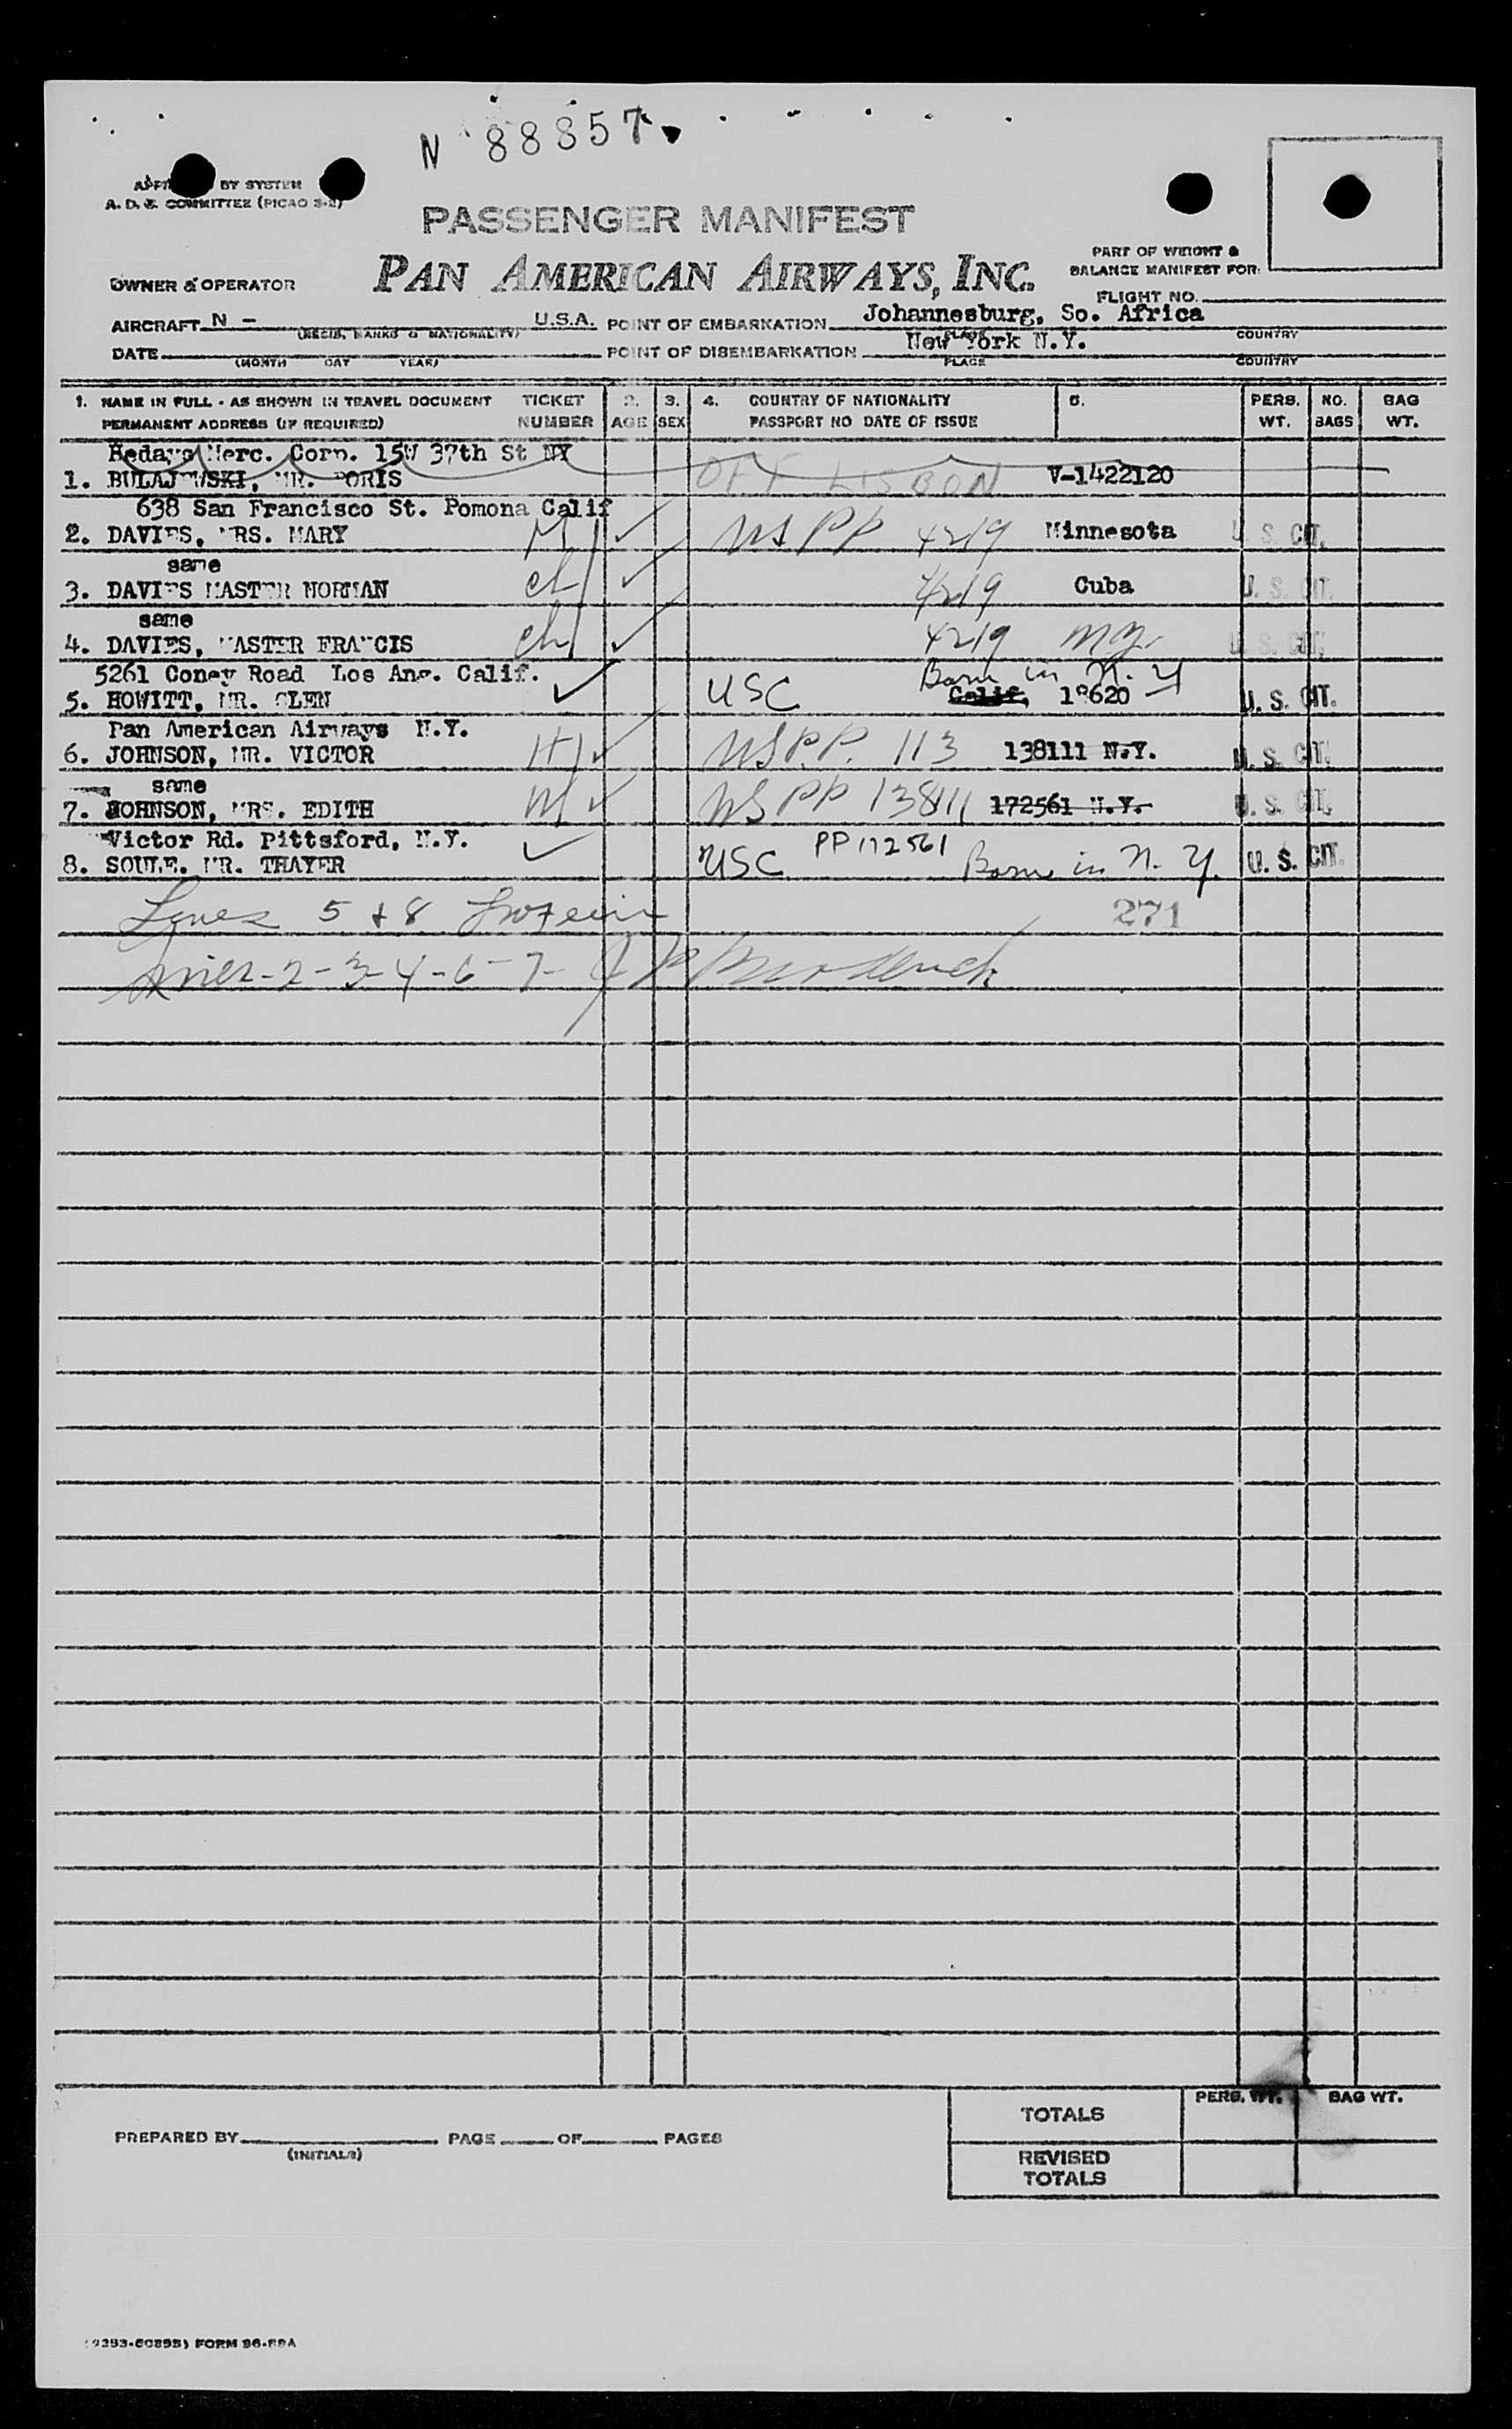 N 88857
BY SYSTEM
A. D. & COMMITTEE (PICAO 3-2)
PASSENGER MANIFEST
PAN AMERICAN AIRWAYS, INC.
OWNER & OPERATOR
PART OF WEIGHT &
BALANCE MANIFEST FOR:
FLIGHT NO.
AIRCRAFT N - U.S.A. POINT OF EMBARKATION Johannesburg, So. Africa
(REGIS, MARKS & NATIONALITY) PLACE COUNTRY
DATE POINT OF DISEMBARKATION New York N.Y.
(MONTH DAY YEAR) PLACE COUNTRY
1. NAME IN FULL - AS SHOWN IN TRAVEL DOCUMENT TICKET 2. 3. 4. COUNTRY OF NATIONALITY 5. PERS. NO. BAG
PERMANENT ADDRESS (IF REQUIRED) NUMBER AGE SEX PASSPORT NO DATE OF ISSUE WT. BAGS WT.
Merc. Corp. 15W 37th St NY
1. BULAJEWSKI, MR. BORIS OFF LISBON V-1422120
638 San Francisco St. Pomona Calif
2. DAVIES, MRS. MARY M US PP 4219 Minnesota U. S. CIT.
same
3. DAVIES MASTER NORMAN ch 4219 Cuba U. S. CIT.
same
4. DAVIES, MASTER FRANCIS ch 4219 U. S. CIT.
5261 Coney Road Los Ang. Calif. Born in N. Y
5. HOWITT, MR. GLEN USC Calif. 18620 U. S. CIT.
Pan American Airways N.Y.
6. JOHNSON, MR. VICTOR H US P.P. 113 138111 N.Y. U. S. CIT.
same
7. JOHNSON, MRS. EDITH M US PP 138111 172561 N.Y. U. S. CIT.
Victor Rd. Pittsford, N.Y. PP 172561
8. SOULE. MR. THAYER USC Born in N. Y. U. S. CIT.
Lines 5 + 8 271
Lines - 2 - 3 - 4 - 6 - 7 -
TOTALS PERS. WT. BAG WT.
PREPARED BY PAGE OF PAGES
(INITIALS)
REVISED
TOTALS
FORM 96-